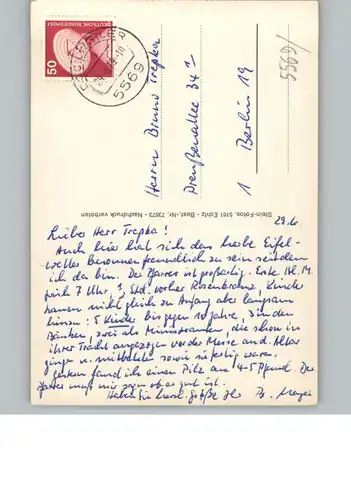 50
DEUTSCHE BUNDESPOST
5569
Herrn Bruno Trepka
Preußenallee 34
1 Berlin 19
5569/
Stein-Fotos, 5161 Echtz - Best.-Nr. 73673 - Nachdruck verboten
29.6.
Lieber Herr Trepka!
Auch hier hat sich das liebe Eifel-
wetter besonnen freundlich zu sein seitdem
ich da bin. Der Pfarrer ist großartig. Erste hl. M.
früh 7 Uhr, 1 Std. vorher Rosenkranz, Kinder
kamen nicht gleich zu Anfang aber langsam
hinzu: 5 Kinder bis gegen 10 Jahre, 3 in den
Bänken, zwei als Ministranten, die schon in
ihrer Tracht angezogen vor der Messe am Altar
gingen u. mitbeteten sowie sie fertig waren.
Gestern fand ich einen Pilz von 4-5 Pfund. Der
Pfarrer muß mir sagen ob er gut ist.
Herzliche Grüße Ihr